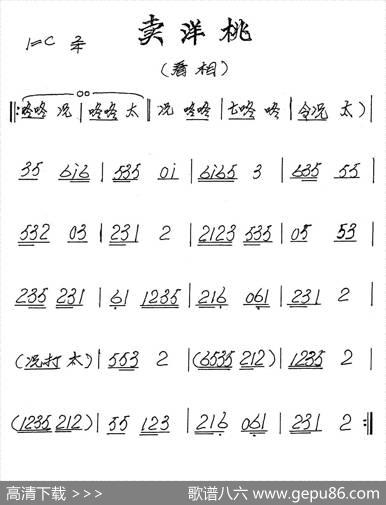 卖洋桃
1=C 2/4
(看相)
‖: 咚咚 况 | 咚咚 太 ‖ 况 咚咚 | 七咚 咚 | 令况 太) |
35 6i6 | 535 0i | 6i65 3 | 635 55 |
532 03 | 231 2 | 2123 535 | 05 53 |
235 231 | 61 1235 | 216 061 | 231 2 |
(况打 太) | 553 2 | (6535 212) | 1235 2 |
(1235 212) | 55 123 | 216 061 | 231 2 :‖
高清下载 >>> 歌谱八六 www.gepu86.com